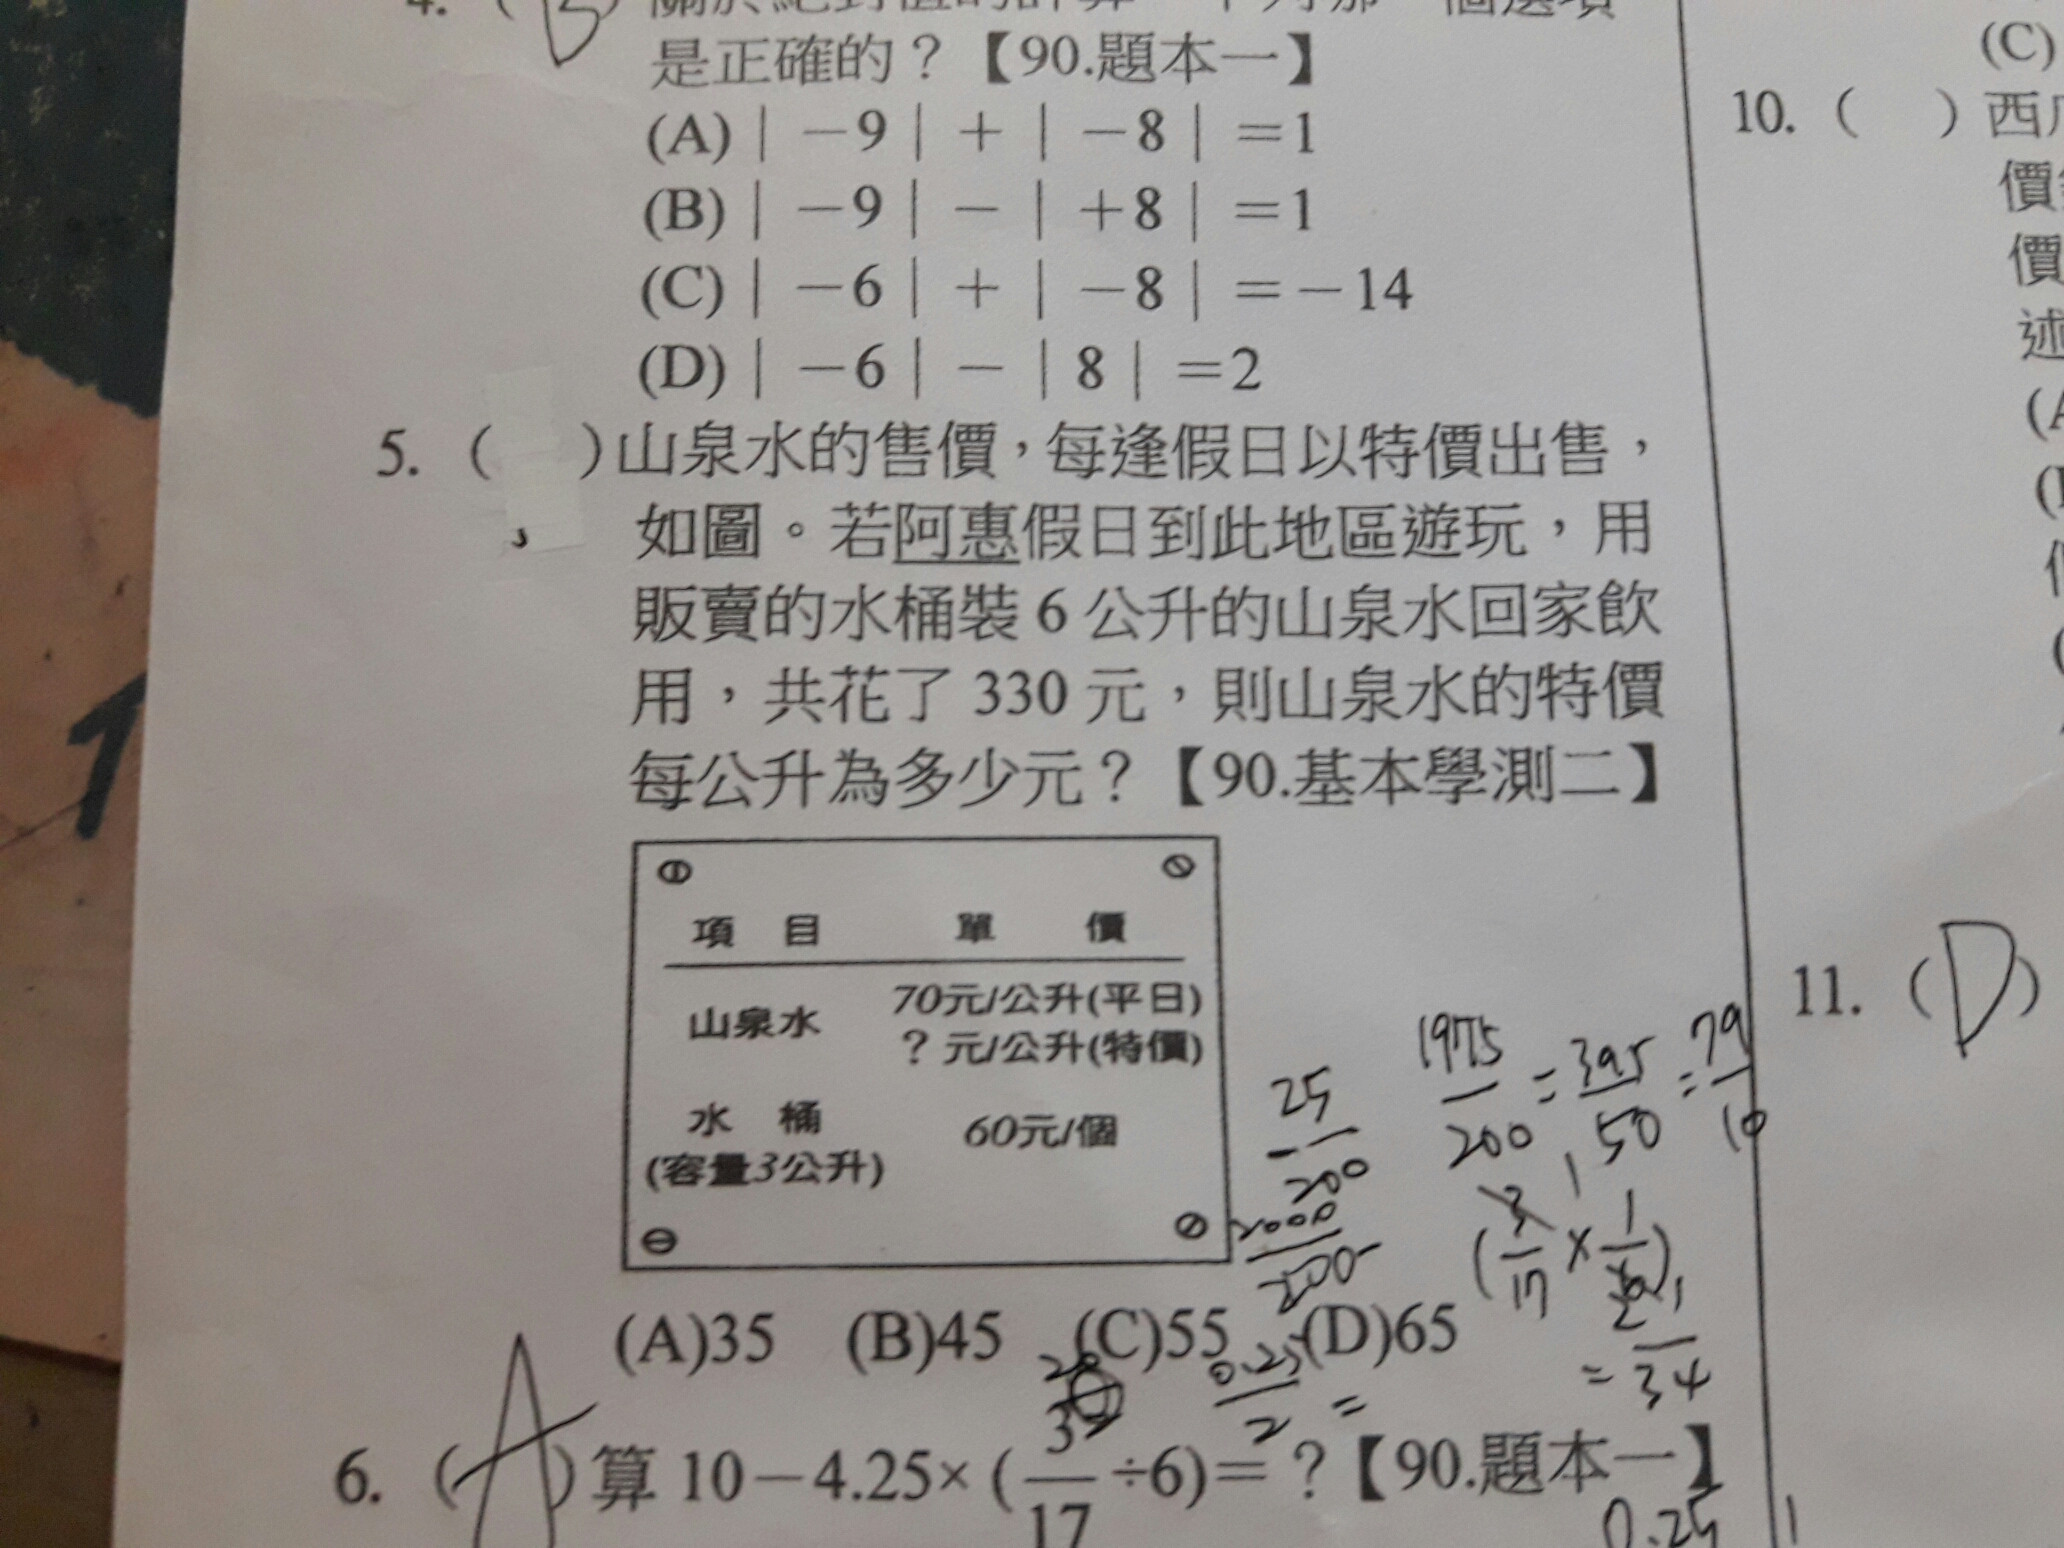 4. ( B ) 關於絕對值的計算，下列哪一個選項
是正確的？【90.題本一】
(A)│－9│＋│－8│＝1
(B)│－9│－│＋8│＝1
(C)│－6│＋│－8│＝－14
(D)│－6│－│8│＝2
5. ( ) 山泉水的售價，每逢假日以特價出售，
如圖。若阿惠假日到此地區遊玩，用
販賣的水桶裝 6 公升的山泉水回家飲
用，共花了 330 元，則山泉水的特價
每公升為多少元？【90.基本學測二】
項 目 單 價
山泉水 70元/公升(平日)
？元/公升(特價)
水 桶 60元/個
(容量3公升)
25
200
1975/200 = 395/50 = 79/10
(3/17 × 1/6)
= 1/34
(A)35 (B)45 (C)55 (D)65
0.25/2 =
6. ( A ) 算 10－4.25×(3/17÷6)＝？【90.題本一】
0.25
(C)
10. ( ) 西
價
價
述
11. ( D )